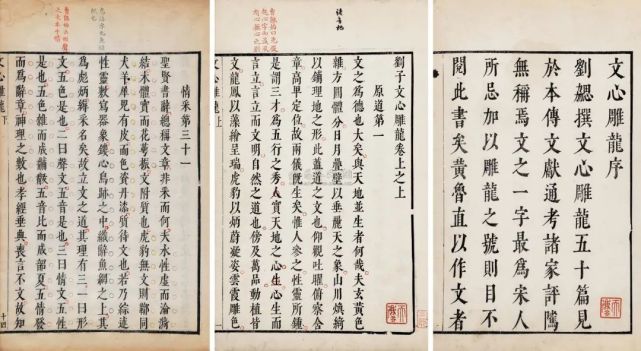 文心雕龍序
劉勰撰文心雕龍五十篇見
於本傳文獻通考諸家評隲
無稱焉文之一字最爲宋人
所忌加以雕龍之號則目不
閱此書矣黃魯直以作文者
劉子文心雕龍卷上之上
原道第一
文之爲德也大矣與天地並生者何哉夫玄黃色
雜方圓體分日月疊璧以垂麗天之象山川煥綺
以鋪理地之形此蓋道之文也仰觀吐曜俯察含
章高卑定位故兩儀既生矣惟人參之性靈所鍾
是謂三才爲五行之秀人實天地之心生心生而
言立言立而文明自然之道也傍及萬品動植皆
文龍鳳以藻繪呈瑞虎豹以炳蔚凝姿雲霞雕色
文心雕龍上
情采第三十一
聖賢書辭總稱文章非采而何夫水性虛而淪漪
結木體實而花萼振文附質也虎豹無文則鞟同
犬羊犀兕有皮而色資丹漆質待文也若乃綜述
性靈敷寫器象鏤心鳥跡之中織辭魚網之上其
爲彪炳縟采名矣故立文之道其理有三一曰形
文五色是也二曰聲文五音是也三曰情文五性
是也五色雜而成黼黻五音比而成韶夏五情發
而爲辭章神理之數也孝經垂典喪言不文故知
文心雕龍下
十四